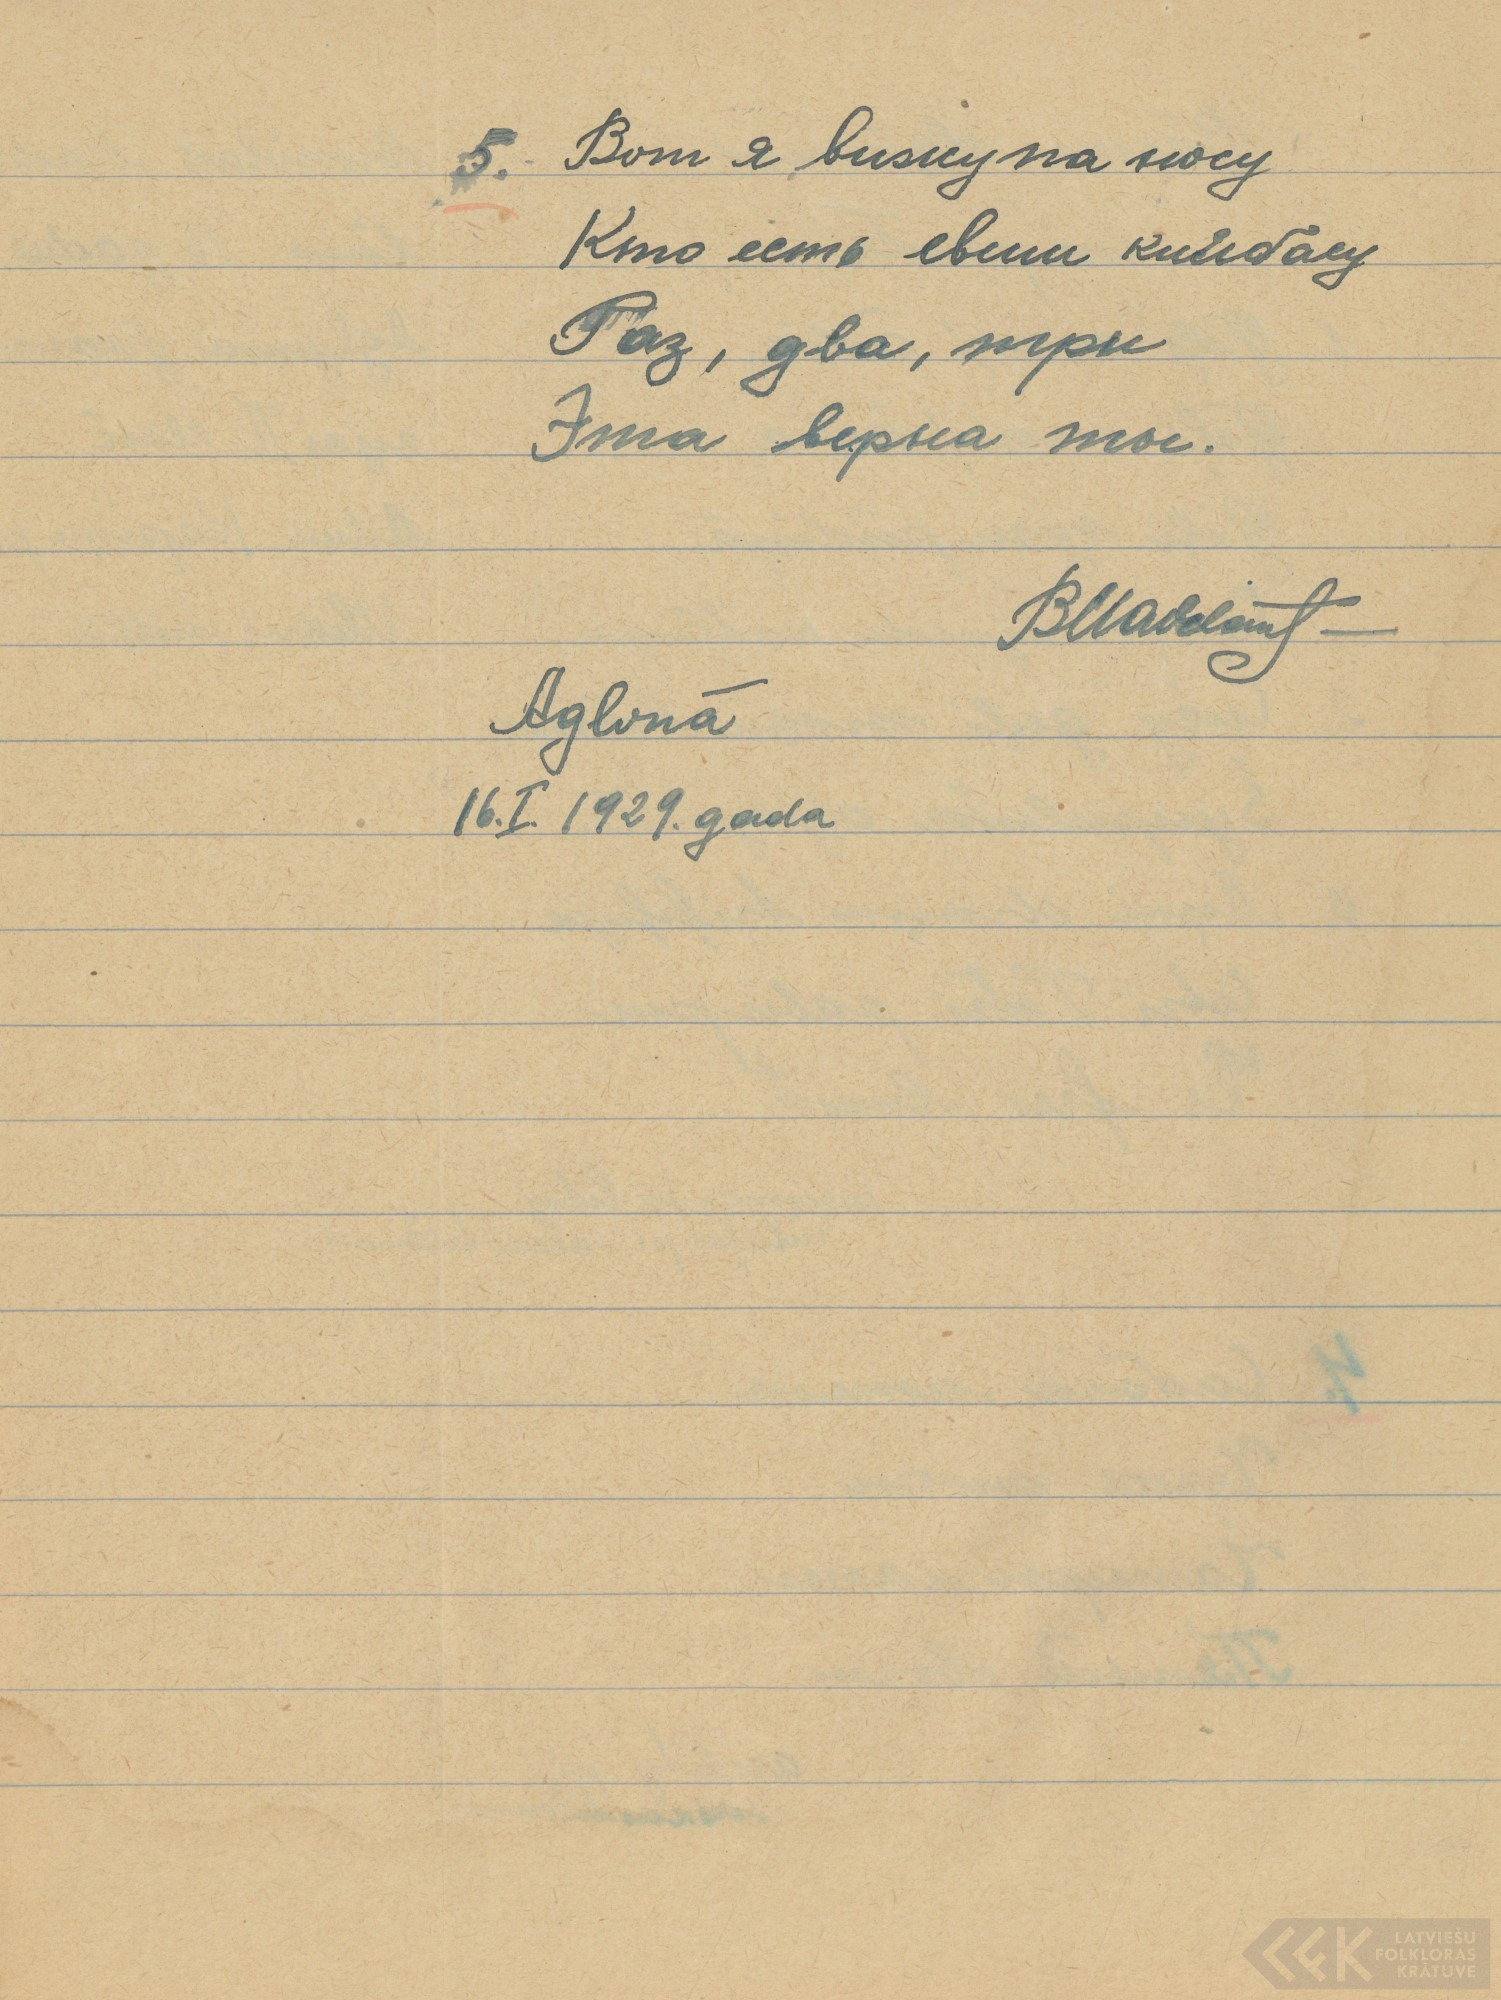 5. Вот я вижу па носу
Кто есть свиш кийбасу
Раз, два, три
Эта верна ты.
Aglonā
16. I. 1929. gada
LATVIEŠU
FOLKLORAS
KRĀTUVE